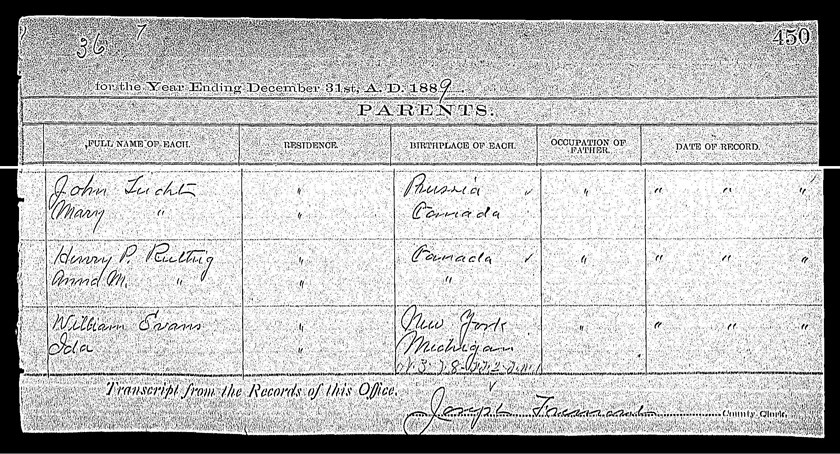 36 7 450
for the Year Ending December 31st, A. D. 1889.
PARENTS.
FULL NAME OF EACH. RESIDENCE. BIRTHPLACE OF EACH. OCCUPATION OF FATHER. DATE OF RECORD.
John Tucht " Prussia " " " "
Mary " " Canada
Henry P. " Canada " " " "
Anna M. " " "
William Evans " New York " " " "
Ida " Michigan
Transcript from the Records of this Office.
Joseph County Clerk.